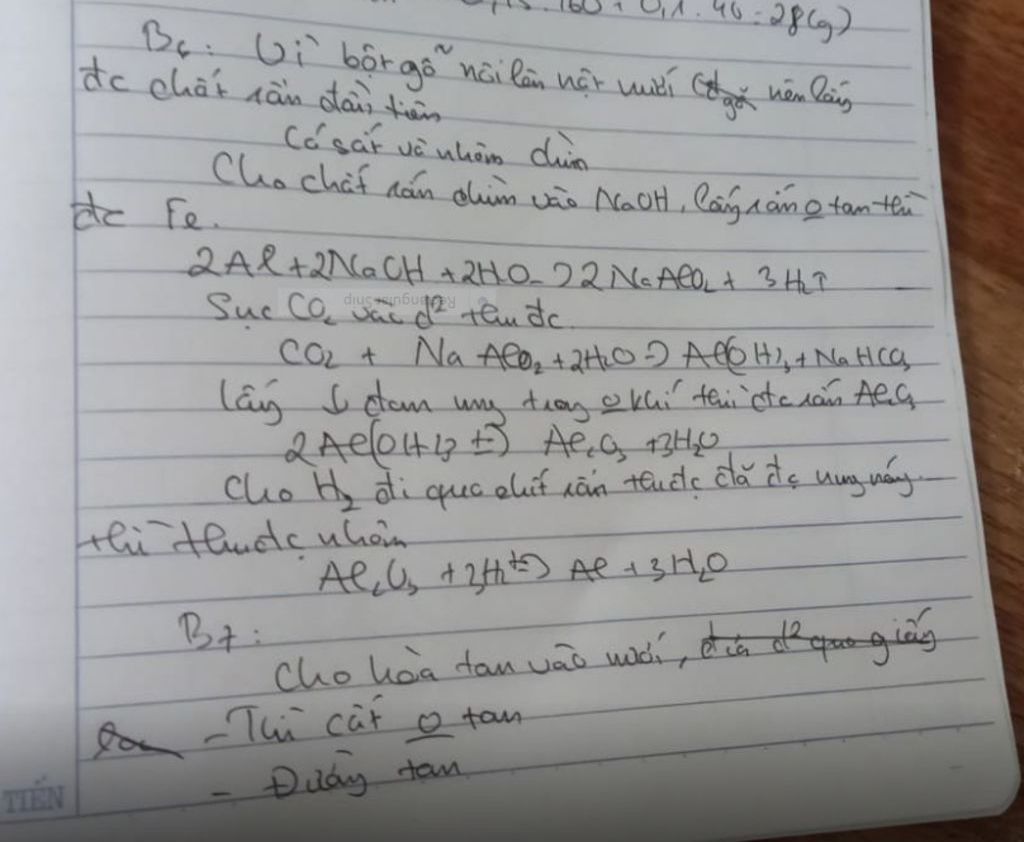 0,15.160+0,1.40=28(g)
B6: Vì bột gỗ nổi lên mặt nước nên lấy
đc chất rắn đầu tiên
Có sắt và nhôm chìm
Cho chất rắn chìm vào NaOH, lấy rắn o tan thì
đc Fe.
2Al+2NaOH+2HO->2NaAlO2+3H2↑
Sục CO2 vào d² thu đc
CO2 + NaAlO2+2H2O-> Al(OH)3+NaHCO3
lấy ↓ đem nung trong o khí thì đc rắn Al2O3
2Al(OH)3 t-> Al2O3 +3H2O
Cho H2 đi qua chất rắn thu đc đã đc nung nóng
thì thu đc nhôm
Al2O3 +3H2 t-> Al +3H2O
B7:
Cho hòa tan vào nước, đưa d² qua giấy
- Thì cát o tan
- Đường tan
TIẾN